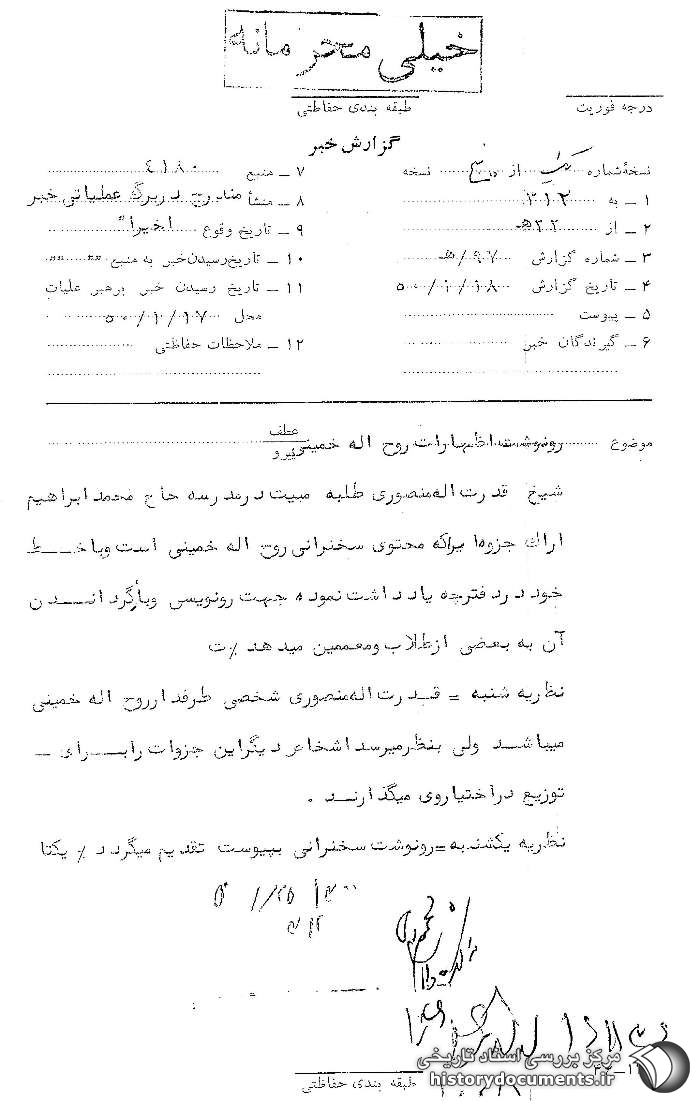 خیلی محرمانه
درجه فوریت
طبقه بندی حفاظتی
گزارش خبر
نسخه شماره یک از نسخه
۱ ـ به ۳۱۲
۲ ـ از ۲۲ هـ
۳ ـ شماره گزارش ۹۷/هـ
۴ ـ تاریخ گزارش ۵۰/۱/۱۸
۵ ـ پیوست
۶ ـ گیرندگان خبر
۷ ـ منبع ۴۱۸۰
۸ ـ منشأ مندرج در برگ عملیاتی خبر
۹ ـ تاریخ وقوع اخیرا"
۱۰ ـ تاریخ رسیدن خبر به منبع " "
۱۱ ـ تاریخ رسیدن خبر برهبر عملیات
محل ۵۰/۱/۱۷
۱۲ ـ ملاحظات حفاظتی
موضوع رونوشت اظهارات روح اله خمینی
عطف
پیرو
شیخ قدرت اله منصوری طلبه مبیت در مدرسه حاج محمد ابراهیم
اراک جزوه ا یراکه محتوی سخنرانی روح اله خمینی است وبا خـط
خود در دفترچه یاد داشت نموده جهت رونویسی وبأرگرد انـدن
آن به بعضی از طلاب ومعممین میدهد ٪ ت
نظریه شنبه = قدرت اله منصوری شخصی طرفدار روح اله خمینی
میباشد ولی بنظر میرسد اشخاص دیگر این جزوات را بـرای ـ
توزیع در اختیار وی میگذارند .
نظریه یکشنبه = رونوشت سخنرانی بپیوست تقدیم میگردد ٪ یکتا
طبقه بندی حفاظتی
مرکز بررسی اسناد تاریخی
historydocuments.ir